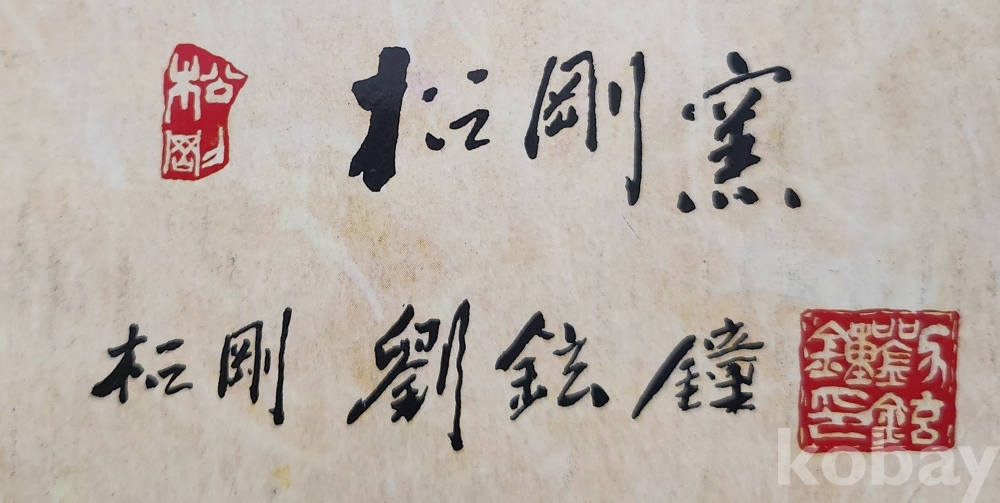 松剛 松剛窯
松剛 劉鉉鐘 劉鉉鐘印
kobay